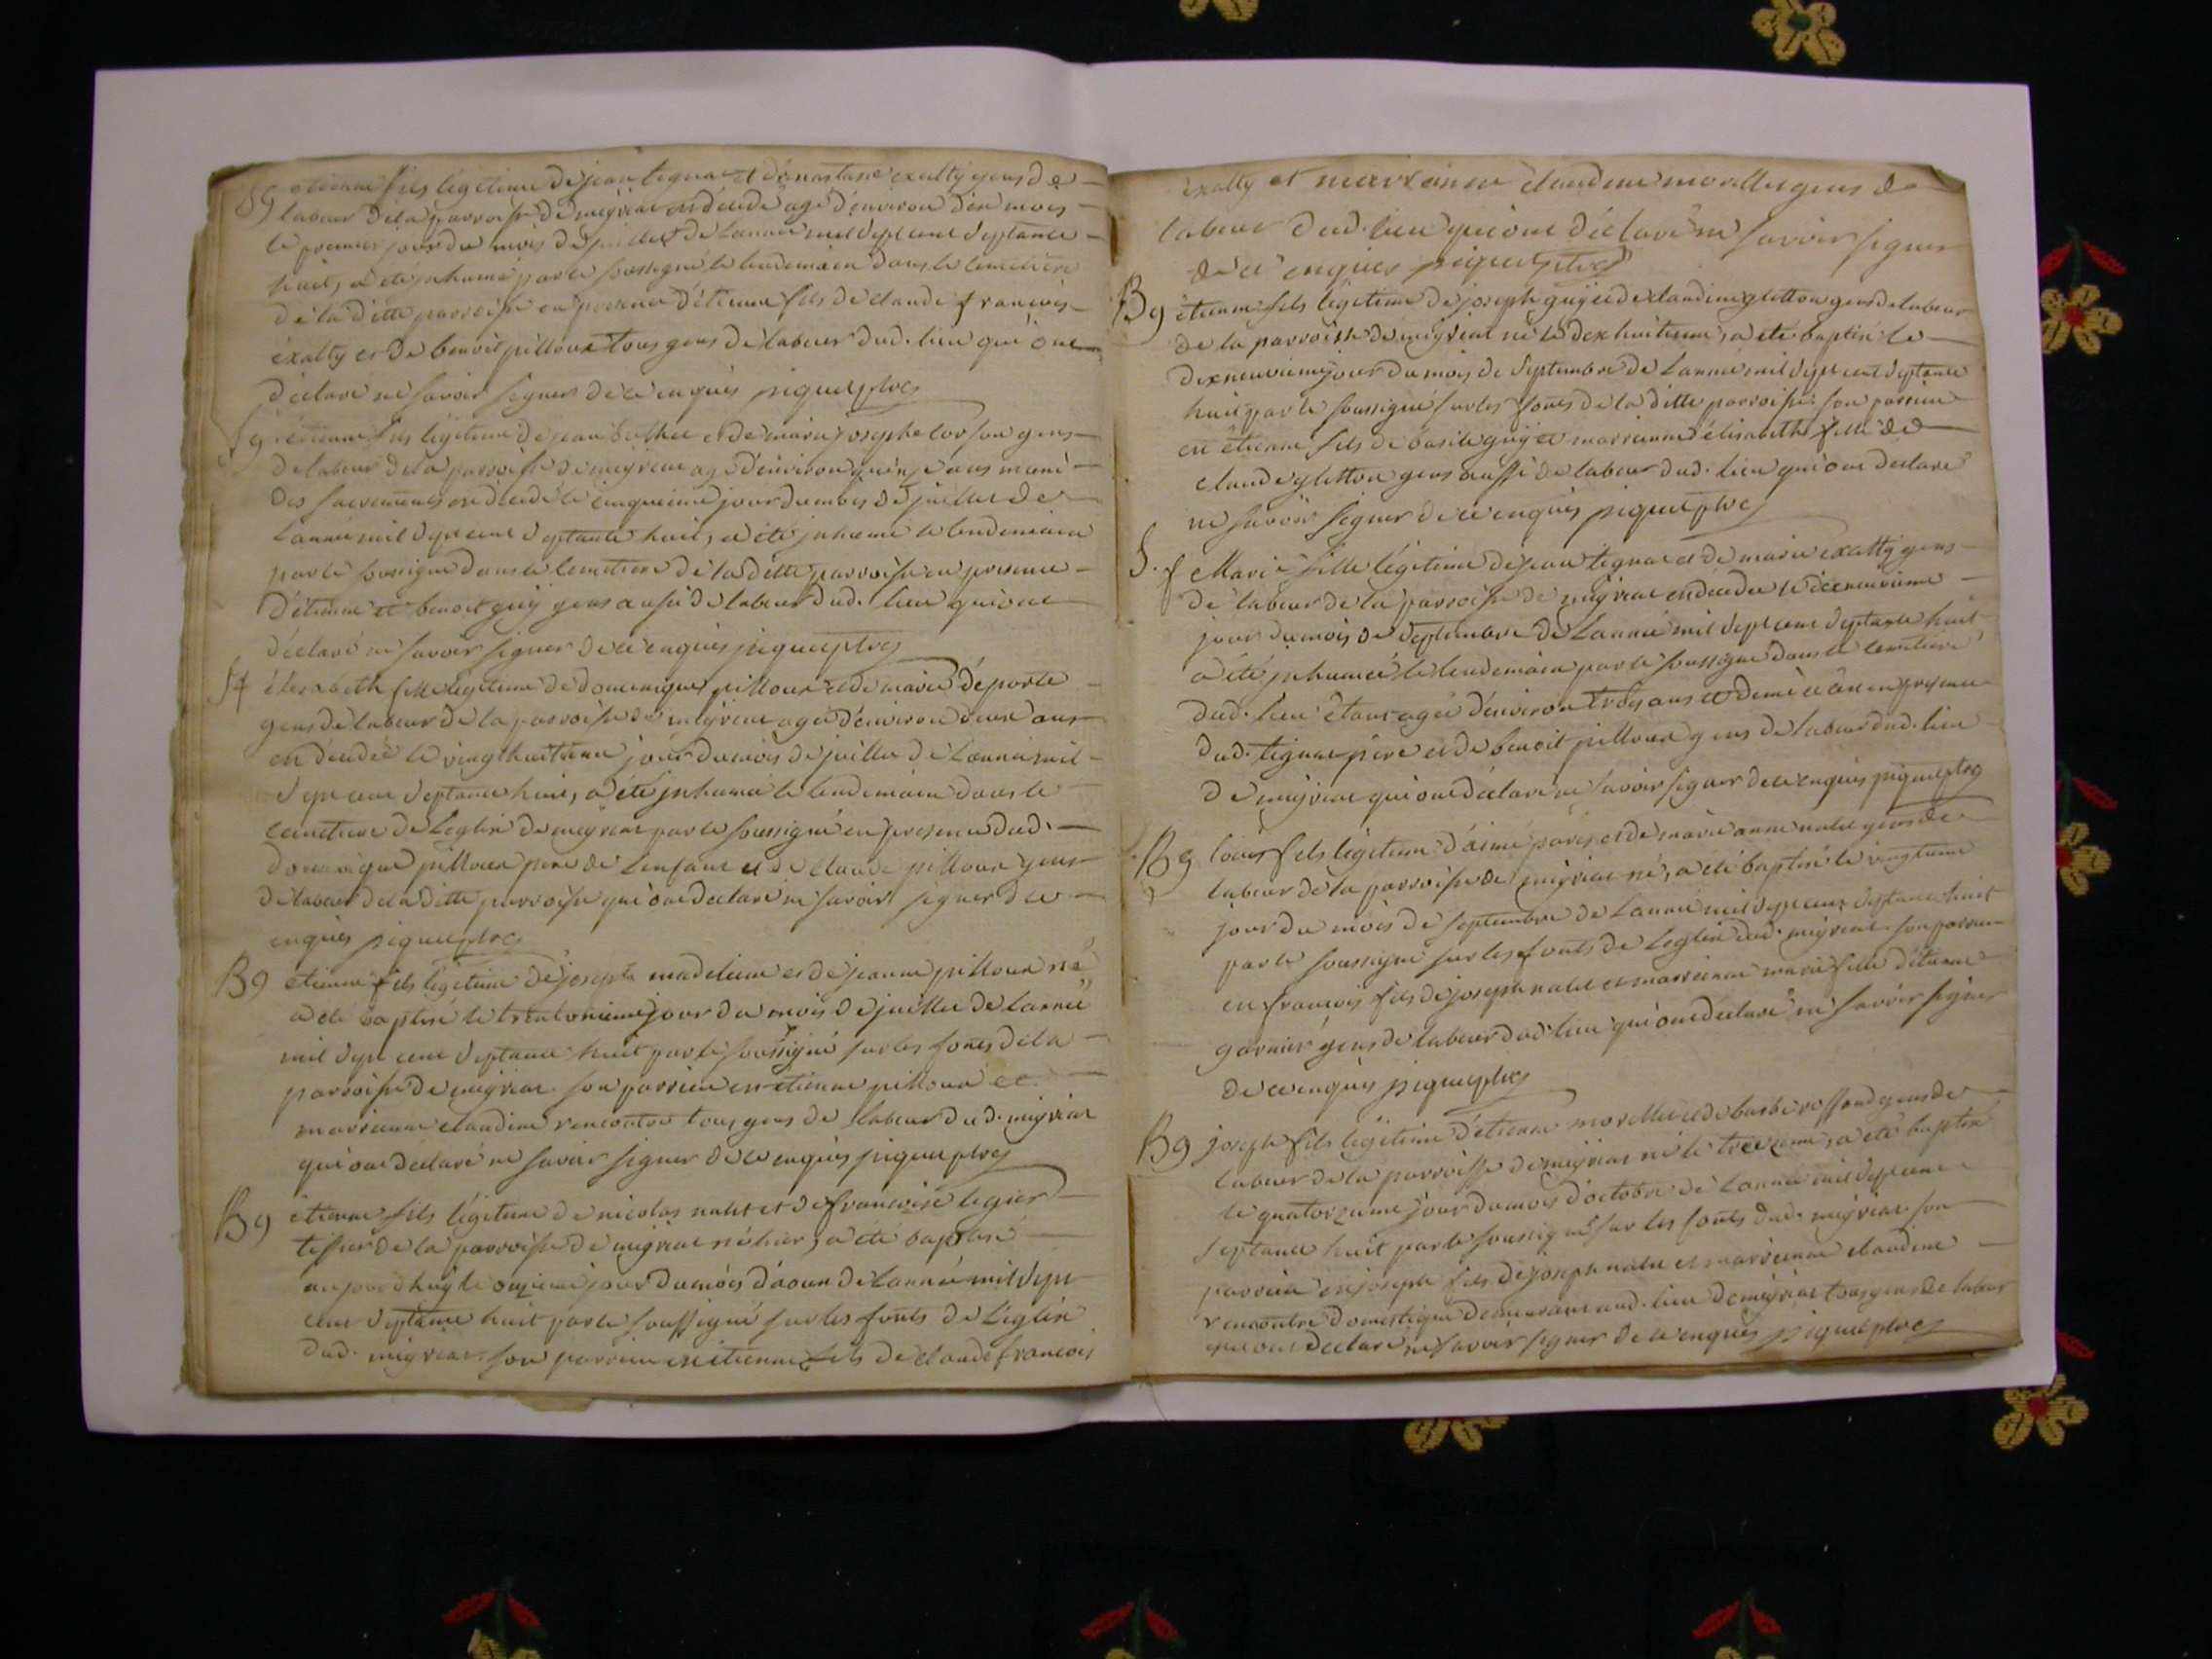 Sg etienne fils légitime de jean tegnac et d'anastasie exalty gens de
labeur de la parroisse de migriat est décédé agé d'environ dix mois
le premier jour du mois de juillet de l'année mil sept cent septante
huit, a été inhumé par le soussigné le lendemain dans le cemetiere
de la ditte parroisse en presence d'étienne fils de claude françois
exalty et de benoit pilloux tous gens de labeur dud. lieu qui ont
déclaré ne savoir signer de ce enquis piquet ptre
Sg étienne fils légitime de jean et de marie josephe gens
de labeur de la parroisse de migriat agé d'environ quinze ans muni
des sacrements est décédé le cinquieme jour du mois de juillet de
l'année mil sept cent septante huit, a été inhumé le lendemain
par le soussigné dans le cemetiere de la ditte parroisse en presence
d'étienne et benoit guÿ gens aussi de labeur dud. lieu qui ont
déclaré ne savoir signer de ce enquis piquet ptre
Sf élisabeth fille légitime de dominique pilloux et de marie deporte
gens de labeur de la parroisse de migriat agée d'environ deux ans
est décédée le vingt huitieme jour du mois de juillet de l'année mil
sept cent septante huit, a été inhumée le lendemain dans le
cemetiere de l'eglise de migriat par le soussigné en presence dud.
dominique pilloux pere de l'enfant et de claude pilloux gens
de labeur de la ditte parroisse qui ont declaré ne savoir signer de ce
enquis piquet ptre
Bg etienne fils légitime de joseph madeleine et de jeanne pilloux né
a été baptisé le trente unieme jour du mois de juillet de l'année
mil sept cent septante huit par le soussigné sur les fonts de la
parroisse de migriat son parrein est etienne pilloux et
marrienne claudine rencontre tous gens de labeur dud. migriat
qui ont declaré ne savoir signer de ce enquis piquet ptre
Bg etienne fils légitime de nicolas nalet et de françoise legier
tissier de la parroisse de migriat né hier, a été baptisé
aujourd'huÿ le onzieme jour du mois d'aoust de l'année mil sept
cent septante huit par le soussigné sur les fonts de l'église
dud. migriat. son parrein est etienne fils de claude francois
exalty et marrienne claudine morellet gens de
labeur dud. lieu qui ont déclaré ne savoir signer
de ce enquis piquet ptre
Bg étienne fils légitime de joseph guÿ et de claudine gletton gens de labeur
de la parroisse de migriat né le dix huitieme, a été baptisé le
dixneuvieme jour du mois de septembre de l'année mil sept cent septante
huit par le soussigné sur les fonts de la ditte parroisse. son parrein
est étienne fils de basile guÿ et marrienne élisabeth fille de
claude gletton gens aussi de labeur dud. lieu qui ont declaré
ne savoir signer de ce enquis piquet ptre
S. f Marie fille légitime de jean tegnac et de marie exaltÿ gens
de labeur de la parroisse de migriat est decedée le dixneuvieme
jour du mois de septembre de l'année mil sept cent septante huit
a été inhumée le lendemain par le soussigné dans le cemetiere
dud. lieu étant agée d'environ trois ans et demi et ce en presence
dud. tegnac pere et de benoit pilloux gens de labeur dud. lieu
de migriat qui ont déclaré ne savoir signer de ce enquis piquet ptre
Bg loüis fils légitime d'aimé paris et de marie anne nalet gens de
labeur de la parroisse de migriat né, a été baptisé le vingtieme
jour du mois de septembre de l'année mil sept cent septante huit
par le soussigné sur les fonts de l'eglise dud. migriat. son parrein
est françois fils de joseph nalet et marrienne marie fille d'étienne
garnier gens de labeur dud. lieu qui ont declaré ne savoir signer
de ce enquis piquet ptre
Bg joseph fils légitime d'étienne morellet et de barbe gens de
labeur de la parroisse de migriat né le treizieme, a été baptisé
le quatorzieme jour du mois d'octobre de l'année mil sept cent
septante huit par le soussigné sur les fonts dud. migriat. son
parrein est joseph fils de joseph nalet et marrienne claudine
rencontre domestique demeurant aud. lieu de migriat tous gens de labeur
qui ont declaré ne savoir signer de ce enquis piquet ptre